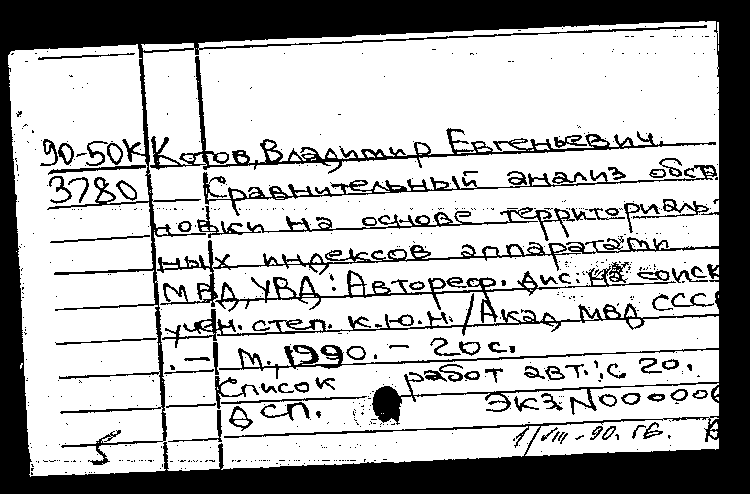 90-50К Котов, Владимир Евгеньевич.
3780 Сравнительный анализ обста
новки на основе территориаль-
ных индексов аппаратами
МВД, УВД : Автореф. дис. на соиск
учен. степ. к.ю.н. / Акад МВД СССР
. – М., 1990. – 20 с.
Список работ авт.: с 20.
ДСП. ЭКЗ N000006
5 1/VIII-90.